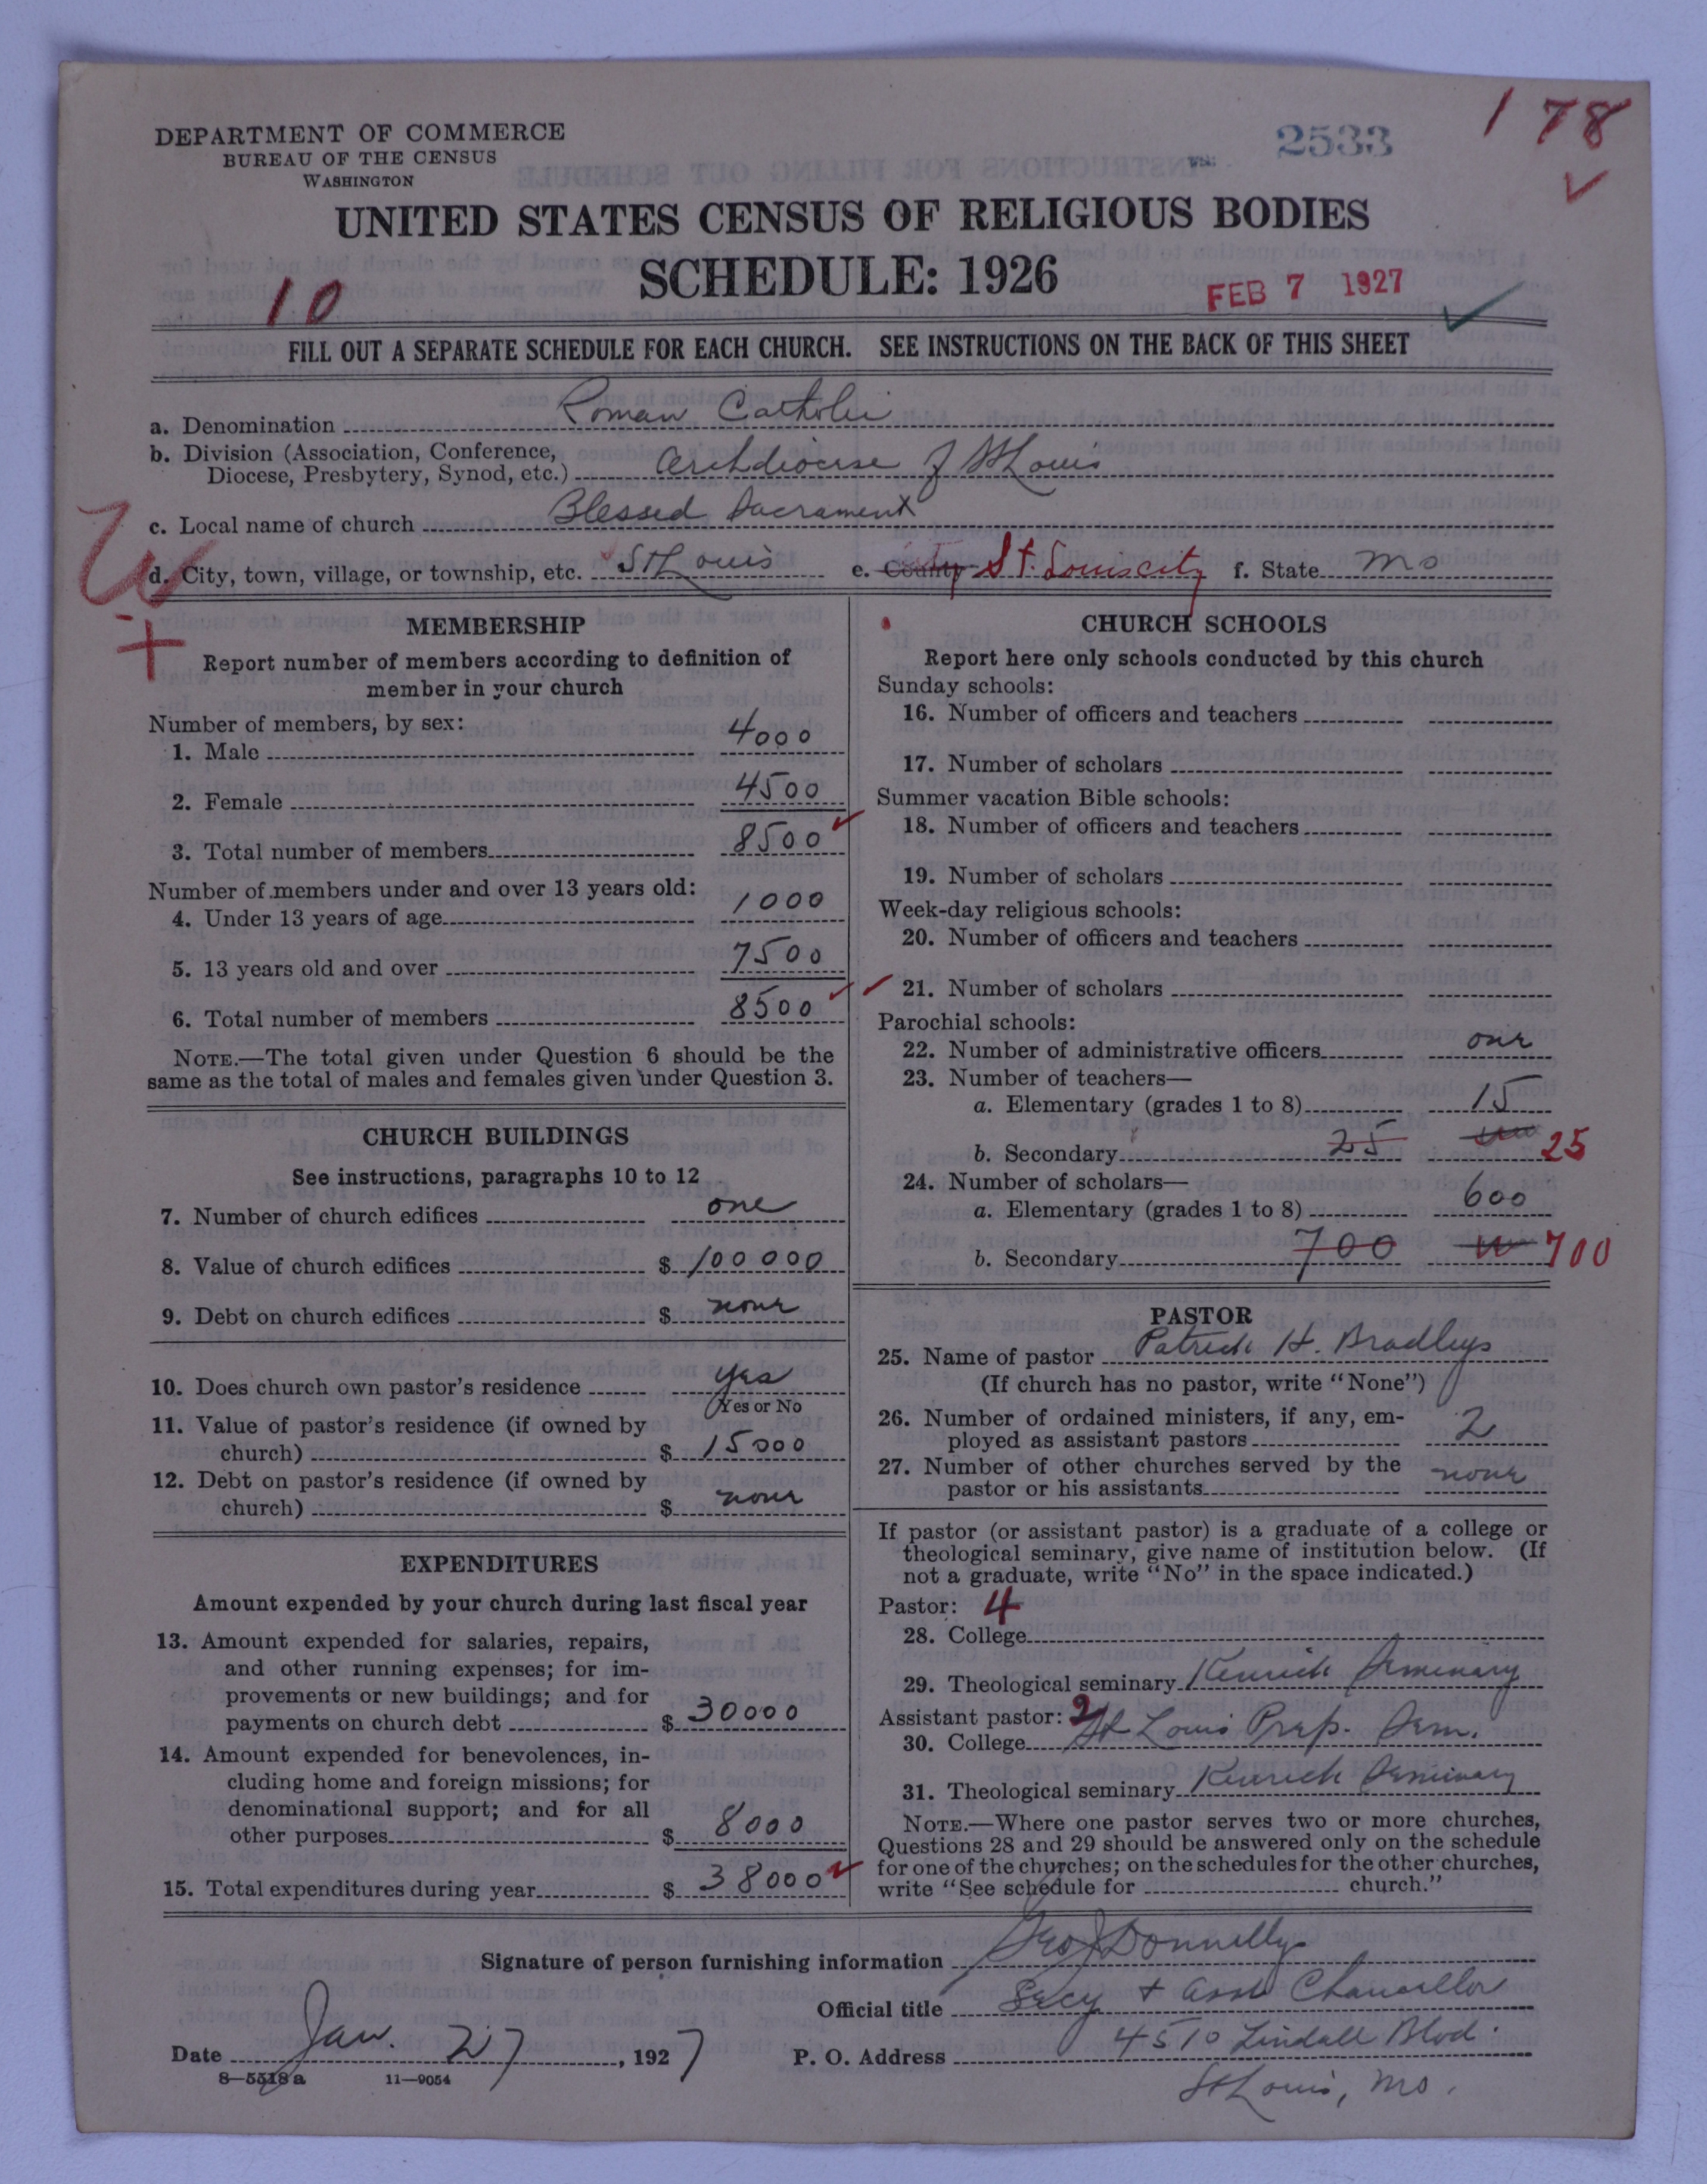 1 78
2533
DEPARTMENT OF COMMERCE
BUREAU OF THE CENSUS
WASHINGTON
UNITED STATES CENSUS OF RELIGIOUS BODIES
SCHEDULE: 1926
10
FEB 7 1927
FILL OUT A SEPARATE SCHEDULE FOR EACH CHURCH. SEE INSTRUCTIONS ON THE BACK OF THIS SHEET
a. Denomination Roman Catholic
b. Division (Association, Conference,
Diocese, Presbytery, Synod, etc.) Archdiocese of St Louis
c. Local name of church Blessed Sacrament
W
d. City, town, village, or township, etc. St Louis e. County St. Louis city f. State Mo
+
MEMBERSHIP
Report number of members according to definition of
member in your church
Number of members, by sex:
1. Male 4000
2. Female 4500
3. Total number of members 8500
Number of members under and over 13 years old:
4. Under 13 years of age 1000
5. 13 years old and over 7500
6. Total number of members 8500
NOTE.—The total given under Question 6 should be the
same as the total of males and females given under Question 3.
CHURCH BUILDINGS
See instructions, paragraphs 10 to 12
7. Number of church edifices one
8. Value of church edifices $ 100000
9. Debt on church edifices $ none
10. Does church own pastor's residence yes
Yes or No
11. Value of pastor's residence (if owned by
church) $ 15000
12. Debt on pastor's residence (if owned by
church) $ none
EXPENDITURES
Amount expended by your church during last fiscal year
13. Amount expended for salaries, repairs,
and other running expenses; for im-
provements or new buildings; and for
payments on church debt $ 30000
14. Amount expended for benevolences, in-
cluding home and foreign missions; for
denominational support; and for all
other purposes $ 8000
15. Total expenditures during year $ 38000
CHURCH SCHOOLS
Report here only schools conducted by this church
Sunday schools:
16. Number of officers and teachers
17. Number of scholars
Summer vacation Bible schools:
18. Number of officers and teachers
19. Number of scholars
Week-day religious schools:
20. Number of officers and teachers
21. Number of scholars
Parochial schools:
22. Number of administrative officers one
23. Number of teachers—
a. Elementary (grades 1 to 8) 15
b. Secondary 25 25
24. Number of scholars—
a. Elementary (grades 1 to 8) 600
b. Secondary 700 700
PASTOR
25. Name of pastor Patrick H. Bradley
(If church has no pastor, write "None")
26. Number of ordained ministers, if any, em-
ployed as assistant pastors 2
27. Number of other churches served by the
pastor or his assistants none
If pastor (or assistant pastor) is a graduate of a college or
theological seminary, give name of institution below. (If
not a graduate, write "No" in the space indicated.)
Pastor: 4
28. College
29. Theological seminary Kenrick Seminary
Assistant pastor: 2
30. College St Louis Prep. Sem.
31. Theological seminary Kenrick Seminary
NOTE.—Where one pastor serves two or more churches,
Questions 28 and 29 should be answered only on the schedule
for one of the churches; on the schedules for the other churches,
write "See schedule for church."
Signature of person furnishing information Geo J Donnelly
Official title Secy + Asst Chancellor
Date Jan. 27, 1927 P. O. Address 4510 Lindell Blvd.
8—5518 a 11—9054
St Louis, Mo.